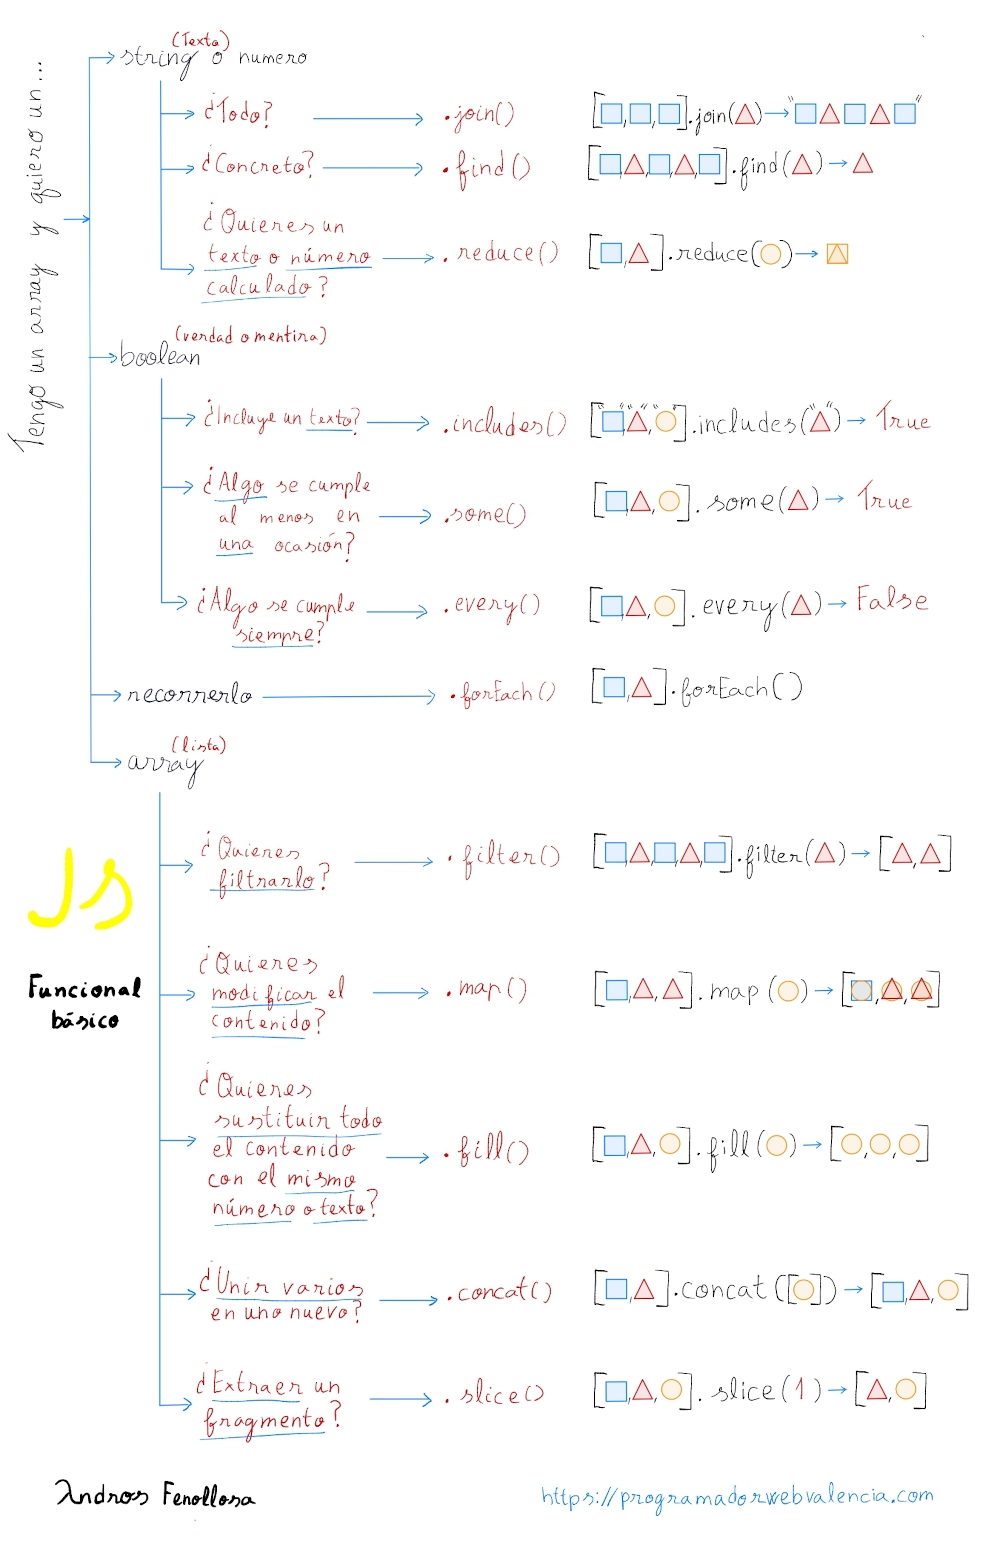 Tengo un array y quiero un...
(Texto)
string o numero
¿Todo?
.join()
[□,□,□].join(△)→"□△□△□"
¿Concreto?
.find()
[□,△,□,△,□].find(△)→△
¿Quieres un
texto o número
calculado?
.reduce()
[□,△].reduce(○)→
(verdad o mentira)
boolean
¿Incluye un texto?
.includes()
["□","△","○"].includes("△")→True
¿Algo se cumple
al menos en
una ocasión?
.some()
[□,△,○].some(△)→True
¿Algo se cumple
siempre?
.every()
[□,△,○].every(△)→False
recorrerlo
.forEach()
[□,△].forEach()
(lista)
array
¿Quieres
filtrarlo?
.filter()
[□,△,□,△,□].filter(△)→[△,△]
JS
Funcional
básico
¿Quieres
modificar el
contenido?
.map()
[□,△,△].map(○)→[ , , ]
¿Quieres
sustituir todo
el contenido
con el mismo
número o texto?
.fill()
[□,△,○].fill(○)→[○,○,○]
¿Unir varios
en uno nuevo?
.concat()
[□,△].concat([○])→[□,△,○]
¿Extraer un
fragmento?
.slice()
[□,△,○].slice(1)→[△,○]
Andros Fenollosa
https://programadorwebvalencia.com